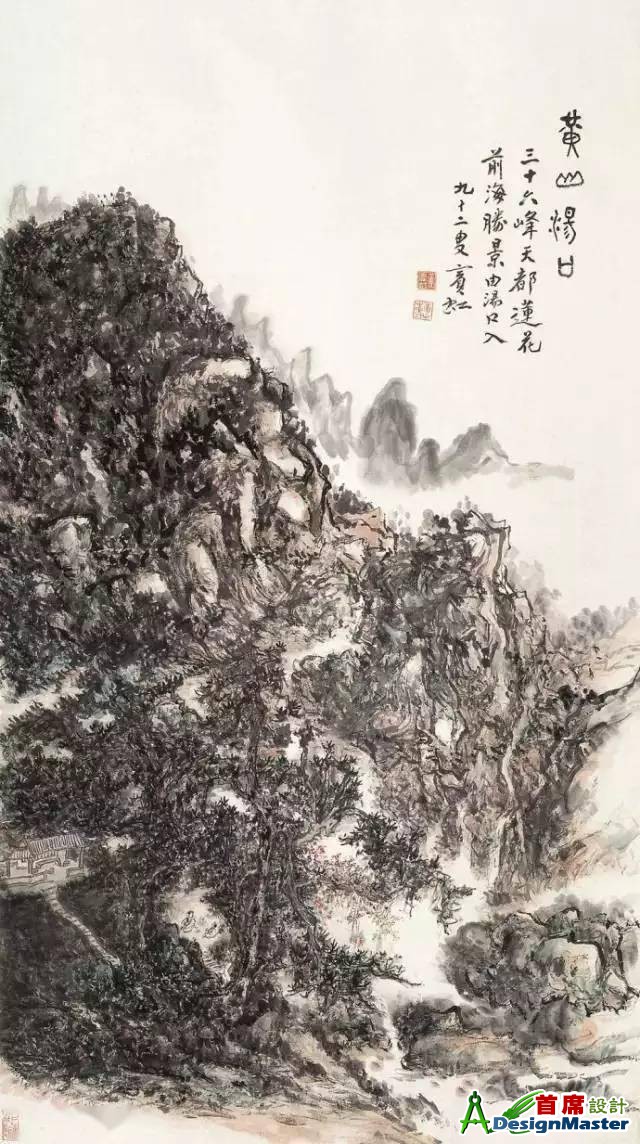 黄山湯口
三十六峰天都蓮花
前海勝景由湯口入
九十二叟賓虹
首席設計
ADesignMaster